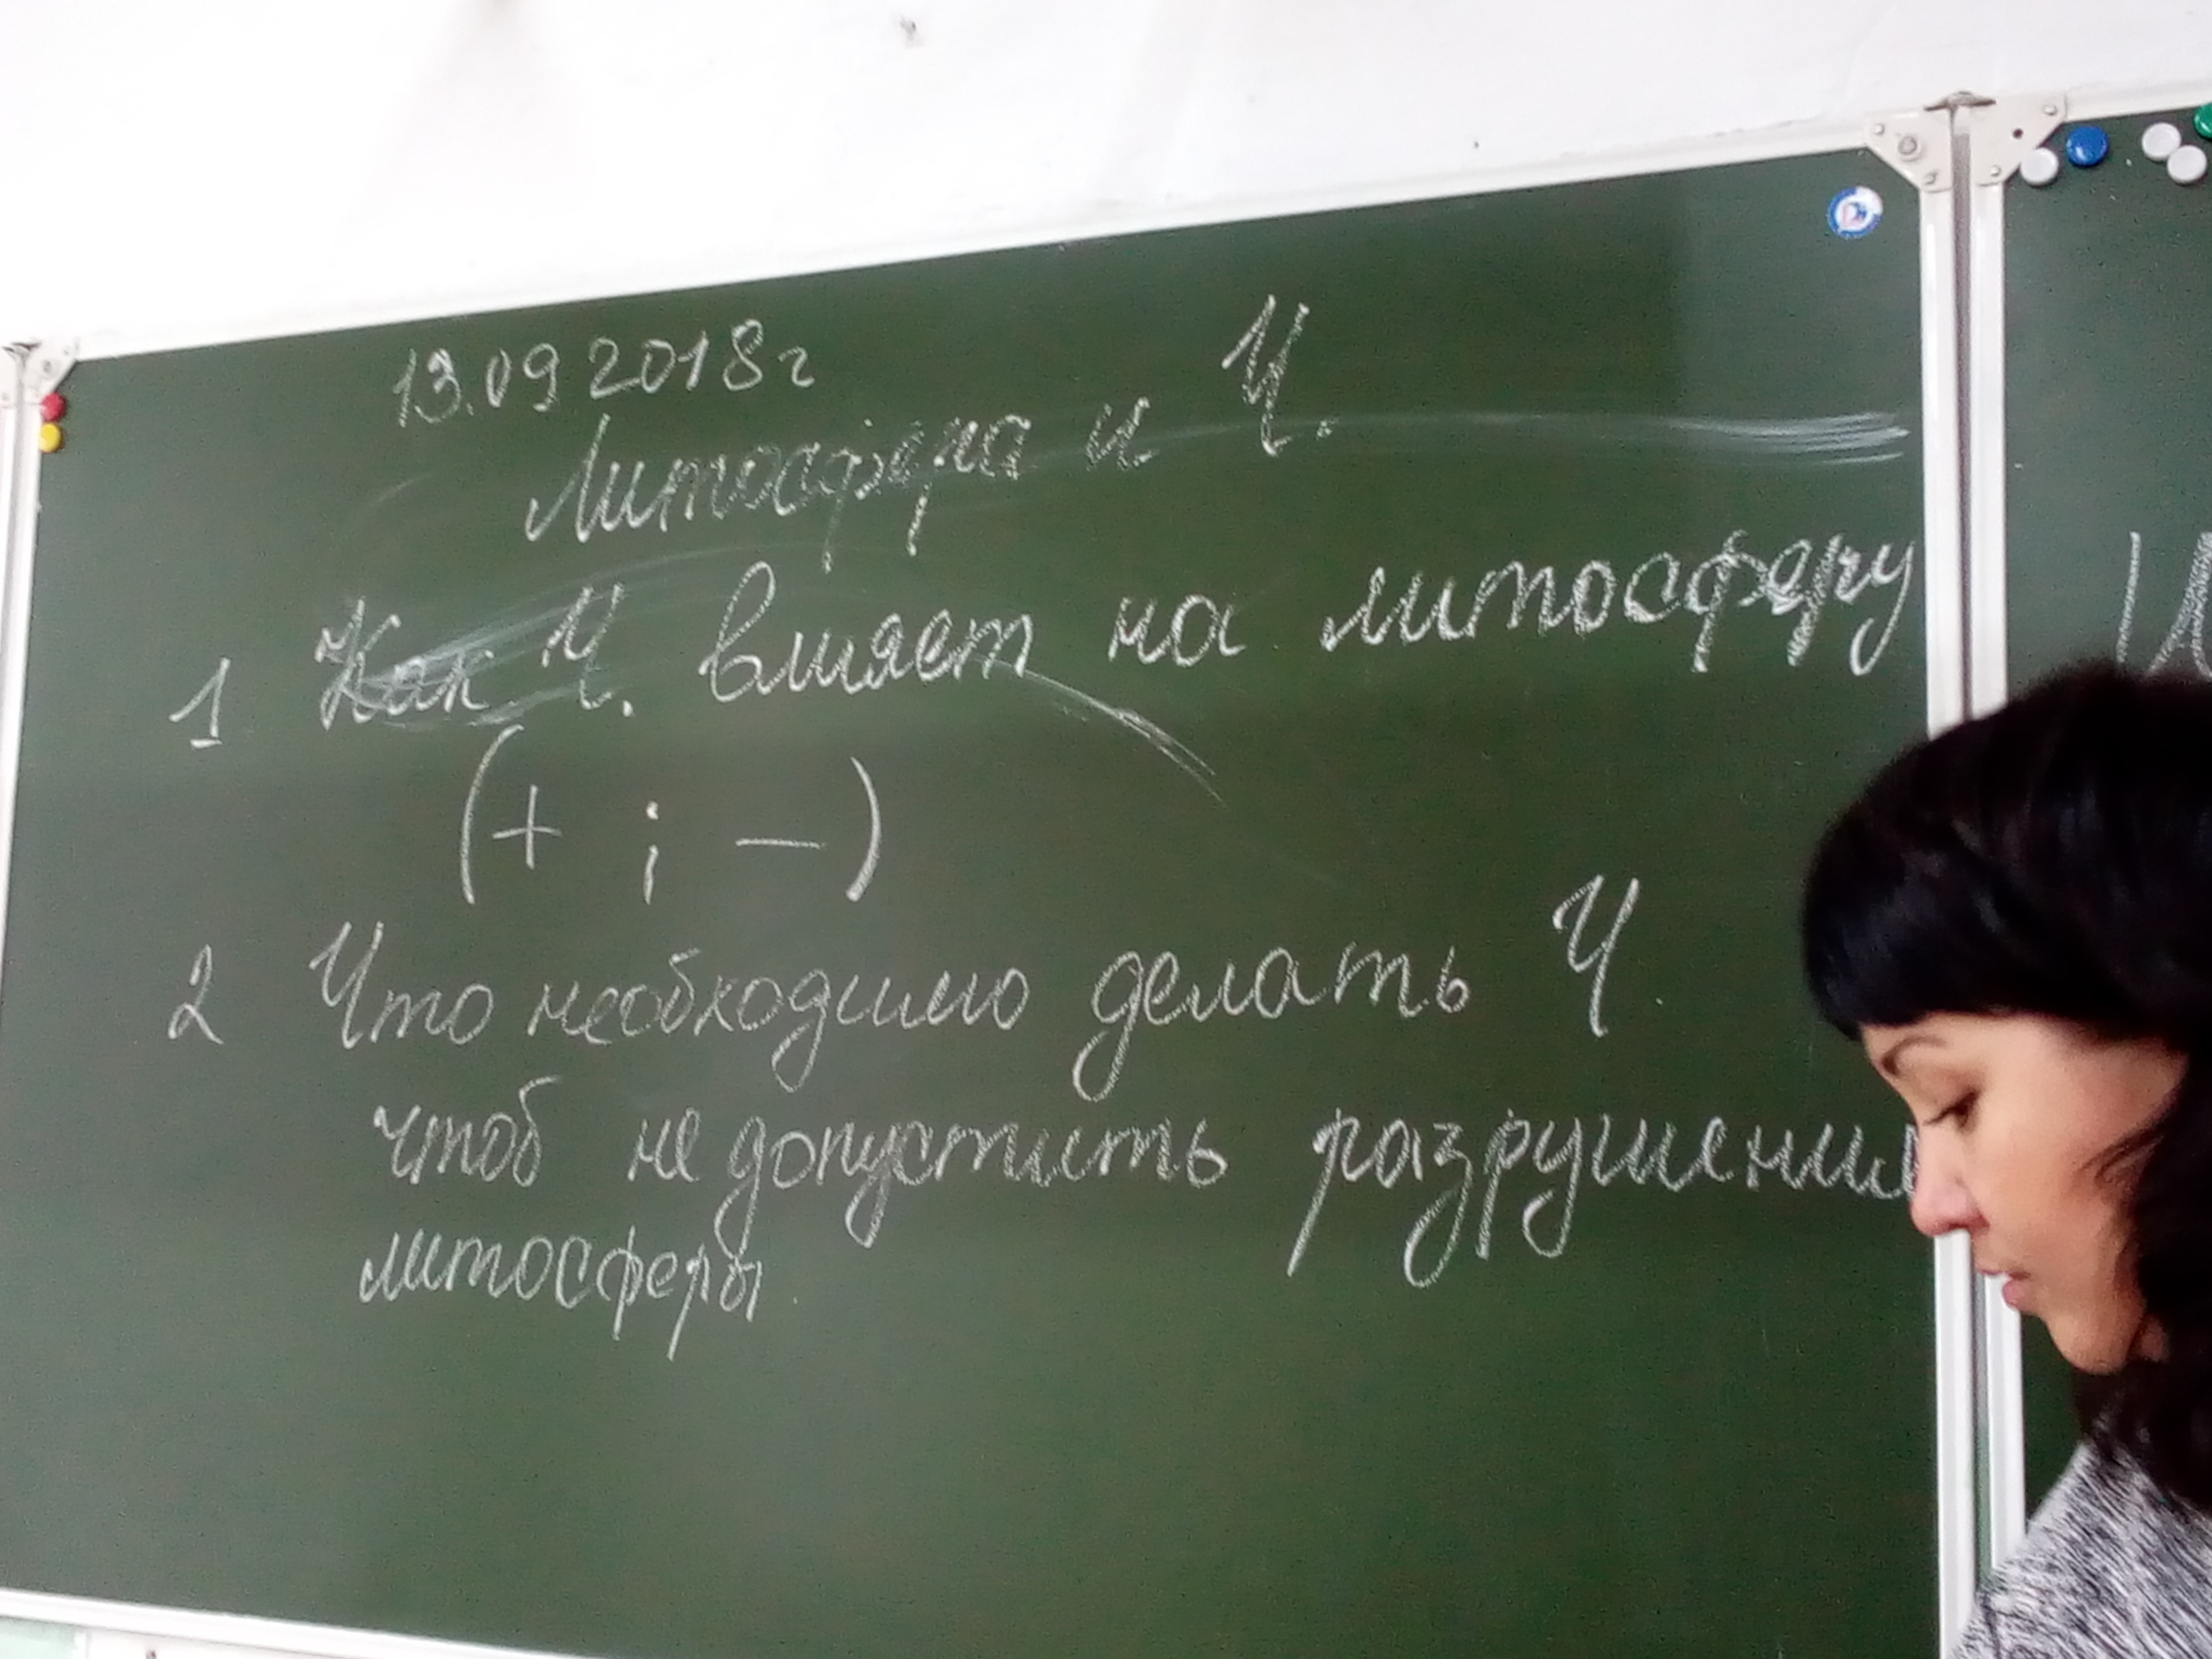 13.09 2018г
Литосфера и Ч.
1 Как Ч. влияет на литосферу
(+ ; -)
2 Что необходимо делать Ч.
чтоб не допустить разрушения
литосферы.